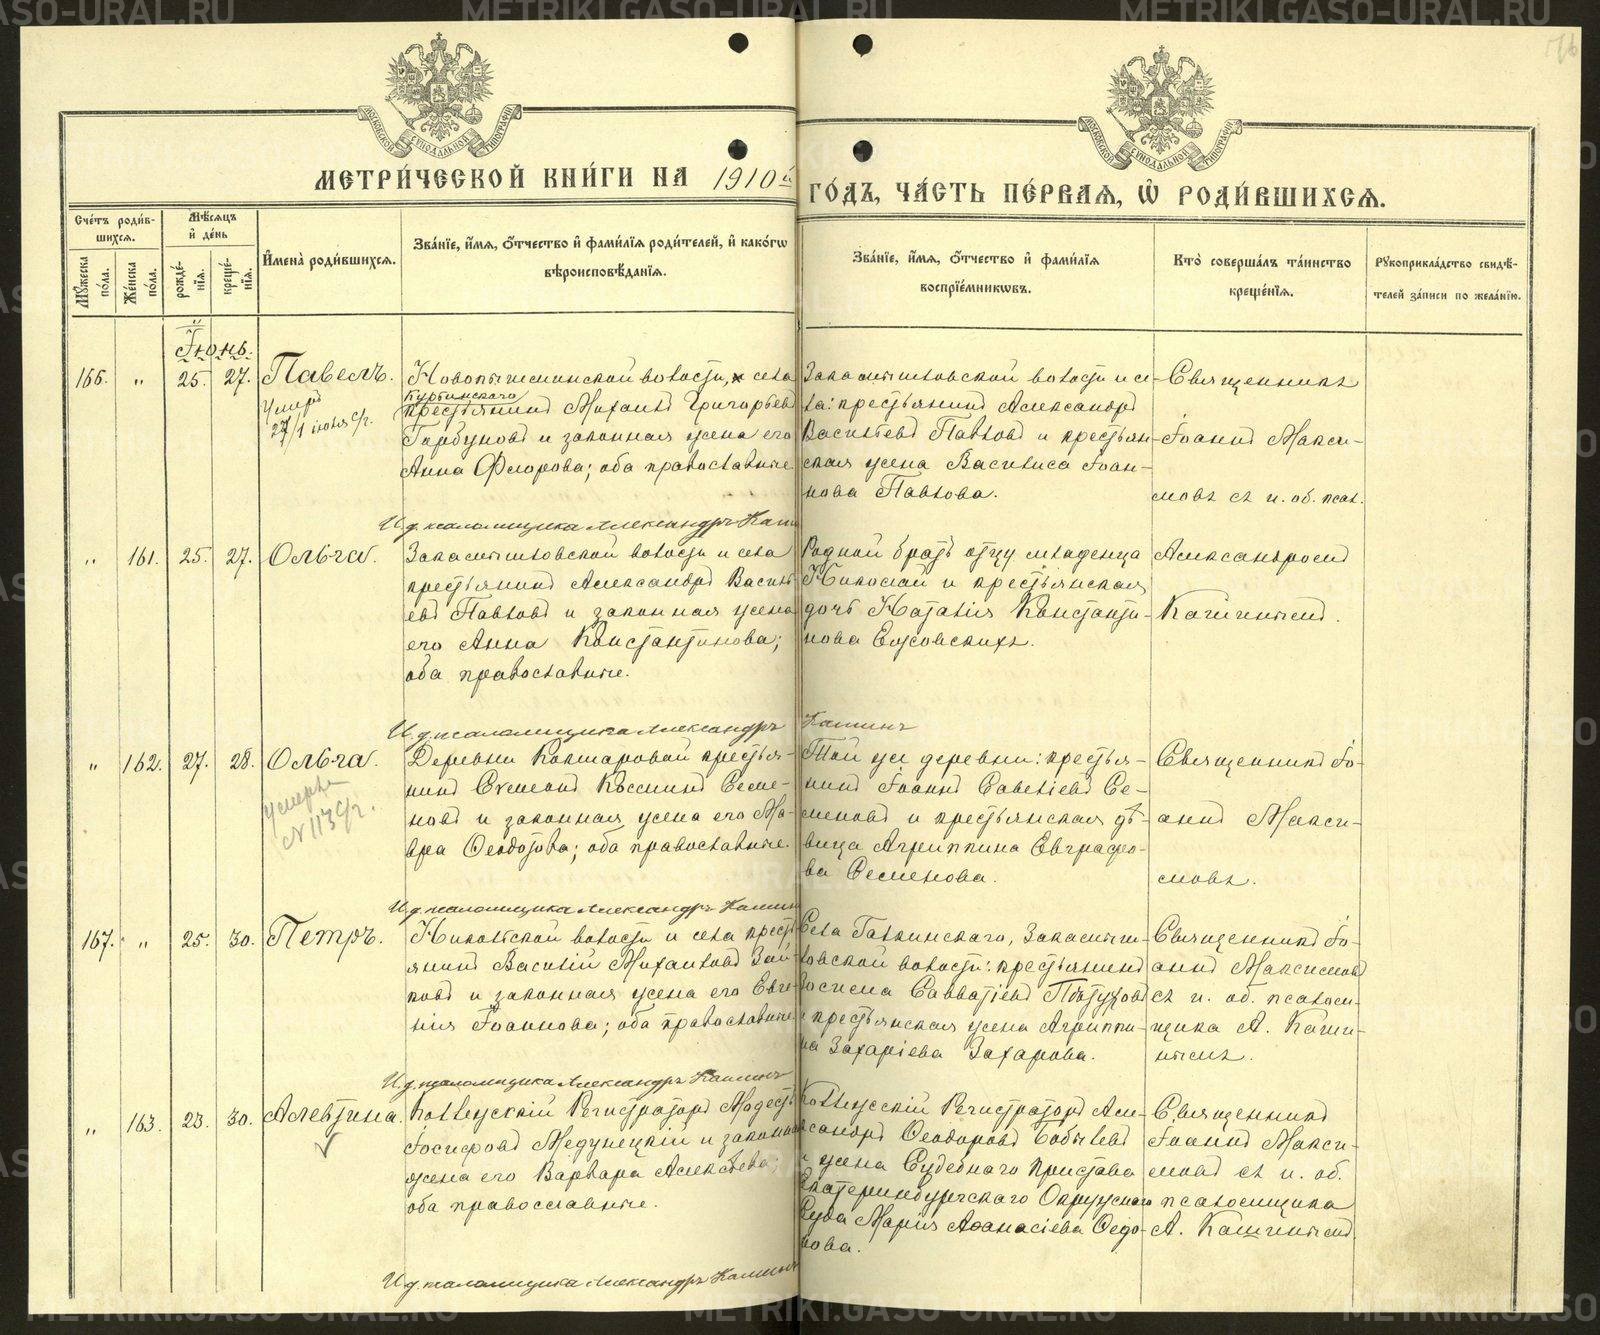 METRIKI.GASO-URAL.RU
МОСКОВСКОЙ СѴНОДАЛЬНОЙ ТИПОГРАФІИ
МОСКОВСКОЙ СѴНОДАЛЬНОЙ ТИПОГРАФІИ
МЕТРИ́ЧЕСКОЙ КНИ́ГИ НА 1910й ГО́ДЪ, ЧА́СТЬ ПЕ́РВАЯ, Ѡ҆ РОДИ́ВШИХСЯ.
Сче́тъ роди́в-
шихся.
Мѣ́сяцъ
и҆ де́нь
Мꙋ́жеска по́ла.
Же́нска по́ла.
рожде́-нїя.
креще́-нїя.
И҆мена̀ роди́вшихся.
Зва́нїе, и҆́мя, ѻ҆́тчество и҆ фами́лїя роди́телей, и҆ како́гѡ
вѣроисповѣ́данїя.
Зва́нїе, и҆́мя, ѻ҆́тчество и҆ фами́лїя
воспрїе́мникѡвъ.
Кто̀ соверша́лъ та́инство
креще́нїя.
Рꙋкоприкла́дство свидѣ́-
телей за́писи по жела́нїю.
Іюнь.
166. " 25. 27. Павелъ.
Умеръ
27/1 іюля с/г.
Новопышминской волости, села
Куртинскаго
крестьянинъ Михаилъ Григорьевъ
Горбуновъ и законная жена его
Анна Флорова; оба православные
Закамышловской волости и се-
ла: крестьянинъ Александръ
Васильевъ Павловъ и крестьян-
ская жена Василиса Іоан-
нова Павлова.
Священникъ
Іоаннъ Макси-
мовъ съ и. об. псал.
И. д. псаломщика Александръ Кашинъ
" 161. 25. 27. Ольга.
Закамышловской волости и села
крестьянинъ Александръ Василь
евъ Павловъ и законная жена
его Анна Константинова;
оба православные.
Родной братъ отцу младенца
Николай и крестьянская
дочь Наталія Константи-
нова Елсовскихъ.
Александромъ
Кашинымъ.
И. д. псаломщика Александръ Кашинъ
" 162. 27. 28. Ольга.
Умерла
№ 113 с/г.
Деревни Кашаровой крестья-
нинъ Симеонъ Косминъ Семе-
новъ и законная жена его Ма-
вра Ѳеодотова; оба православные.
Той же деревни: крестья-
нинъ Іоаннъ Савеліевъ Се-
меновъ и крестьянская дѣ-
вица Агриппина Евграфо-
ва Семенова.
Священникъ Іо-
аннъ Макси-
мовъ.
И. д. псаломщика Александръ Кашинъ
167. " 25. 30. Петръ.
Никольской волости и села крестъ
янинъ Василій Михаиловъ Зай-
ковъ и законная жена его Евге-
нія Іоаннова; оба православные
Села Галкинскаго, Закамыш-
ловской волости: крестьянинъ
Зосима Савватіевъ Пѣтуховъ
и крестьянская жена Агриппи-
на Захаріева Захарова.
Священникъ Іо-
аннъ Максимовъ
съ и. об. псалом-
щика А. Каши-
нымъ.
И. д. псаломщика Александръ Кашинъ
" 163. 23. 30. Алевтина.
Коллежскій Регистраторъ Модестъ
Іосифовъ Медунецкій и законная
жена его Варвара Алексѣева;
оба православные.
Коллежскій Регистраторъ Але-
ксандръ Ѳеодоровъ Бобылевъ
и жена Судебнаго пристава
Екатеринбургскаго Окружнаго
Суда Марія Аѳанасіева Ѳедо-
рова.
Священникъ
Іоаннъ Макси-
мовъ съ и. об.
псаломщика
А. Кашинымъ.
И. д. псаломщика Александръ Кашинъ